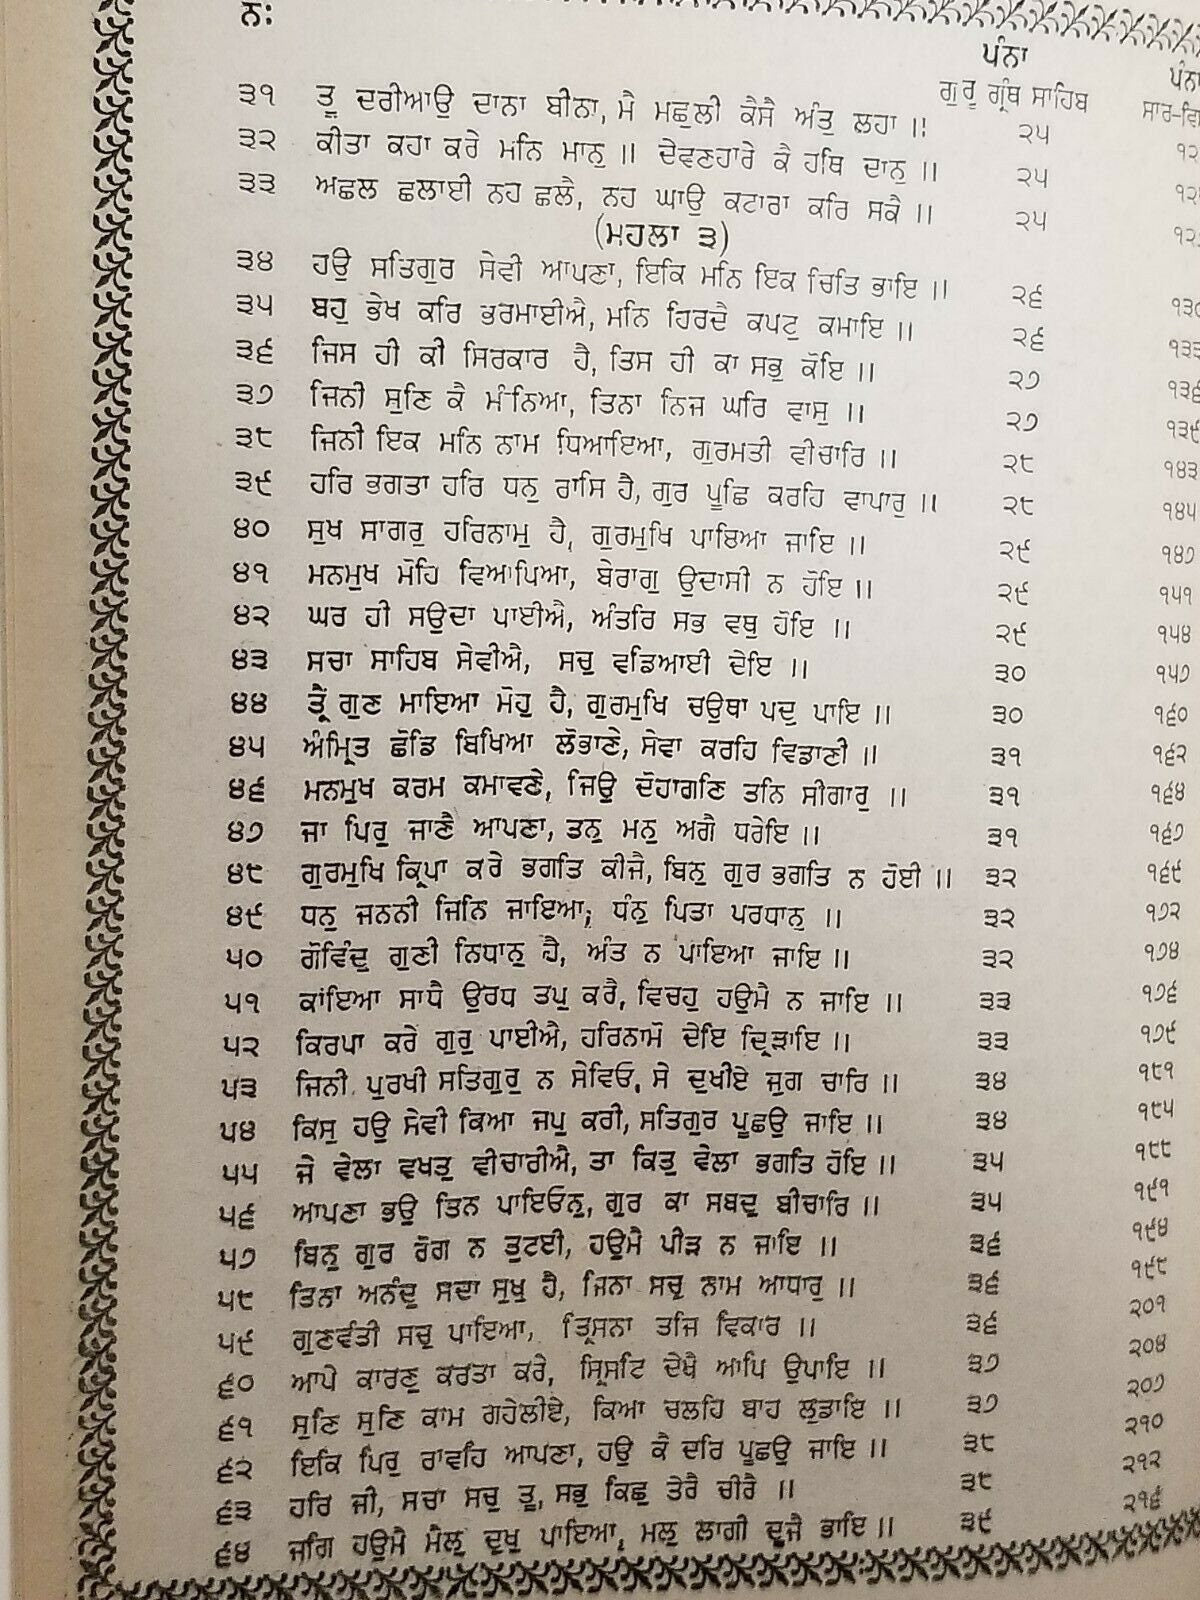 ਨ:
ਪੰਨਾ ਪੰਨਾ
ਗੁਰੂ ਗ੍ਰੰਥ ਸਾਹਿਬ ਸਾਰ-ਵਿ
੩੧ ਤੂ ਦਰੀਆਉ ਦਾਨਾ ਬੀਨਾ, ਮੈ ਮਛੁਲੀ ਕੈਸੈ ਅੰਤੁ ਲਹਾ ॥ ੨੫ ੧੨
੩੨ ਕੀਤਾ ਕਹਾ ਕਰੇ ਮਨਿ ਮਾਨੁ ॥ ਦੇਵਣਹਾਰੇ ਕੈ ਹਥਿ ਦਾਨੁ ॥ ੨੫ ੧੨
੩੩ ਅਛਲ ਛਲਾਈ ਨਹ ਛਲੈ, ਨਹ ਘਾਉ ਕਟਾਰਾ ਕਰਿ ਸਕੈ ॥ ੨੫ ੧੨
(ਮਹਲਾ ੩)
੩੪ ਹਉ ਸਤਿਗੁਰ ਸੇਵੀ ਆਪਣਾ, ਇਕਿ ਮਨਿ ਇਕ ਚਿਤਿ ਭਾਇ ॥ ੨੬ ੧੩੦
੩੫ ਬਹੁ ਭੇਖ ਕਰਿ ਭਰਮਾਈਐ, ਮਨਿ ਹਿਰਦੈ ਕਪਟੁ ਕਮਾਇ ॥ ੨੬ ੧੩੩
੩੬ ਜਿਸ ਹੀ ਕੀ ਸਿਰਕਾਰ ਹੈ, ਤਿਸ ਹੀ ਕਾ ਸਭੁ ਕੋਇ ॥ ੨੭ ੧੩੬
੩੭ ਜਿਨੀ ਸੁਣਿ ਕੈ ਮੰਨਿਆ, ਤਿਨਾ ਨਿਜ ਘਰਿ ਵਾਸੁ ॥ ੨੭ ੧੩੯
੩੮ ਜਿਨੀ ਇਕ ਮਨਿ ਨਾਮ ਧਿਆਇਆ, ਗੁਰਮਤੀ ਵੀਚਾਰਿ ॥ ੨੮ ੧੪੩
੩੯ ਹਰਿ ਭਗਤਾ ਹਰਿ ਧਨੁ ਰਾਸਿ ਹੈ, ਗੁਰ ਪੂਛਿ ਕਰਹਿ ਵਾਪਾਰੁ ॥ ੨੮ ੧੪੫
੪੦ ਸੁਖ ਸਾਗਰੁ ਹਰਿਨਾਮੁ ਹੈ, ਗੁਰਮੁਖਿ ਪਾਇਆ ਜਾਇ ॥ ੨੯ ੧੪੭
੪੧ ਮਨਮੁਖ ਮੋਹਿ ਵਿਆਪਿਆ, ਬੇਰਾਗੁ ਉਦਾਸੀ ਨ ਹੋਇ ॥ ੨੯ ੧੫੧
੪੨ ਘਰ ਹੀ ਸਉਦਾ ਪਾਈਐ, ਅੰਤਰਿ ਸਭ ਵਥੁ ਹੋਇ ॥ ੨੯ ੧੫੪
੪੩ ਸਚਾ ਸਾਹਿਬ ਸੇਵੀਐ, ਸਚੁ ਵਡਿਆਈ ਦੇਇ ॥ ੩੦ ੧੫੭
੪੪ ਤ੍ਰੈ ਗੁਣ ਮਾਇਆ ਮੋਹੁ ਹੈ, ਗੁਰਮੁਖਿ ਚਉਥਾ ਪਦੁ ਪਾਇ ॥ ੩੦ ੧੬੦
੪੫ ਅੰਮ੍ਰਿਤ ਛੋਡਿ ਬਿਖਿਆ ਲੋਭਾਣੇ, ਸੇਵਾ ਕਰਹਿ ਵਿਡਾਣੀ ॥ ੩੧ ੧੬੨
੪੬ ਮਨਮੁਖ ਕਰਮ ਕਮਾਵਣੇ, ਜਿਉ ਦੋਹਾਗਣਿ ਤਨਿ ਸੀਗਾਰੁ ॥ ੩੧ ੧੬੪
੪੭ ਜਾ ਪਿਰੁ ਜਾਣੈ ਆਪਣਾ, ਤਨੁ ਮਨੁ ਅਗੈ ਧਰੇਇ ॥ ੩੧ ੧੬੭
੪੮ ਗੁਰਮੁਖਿ ਕ੍ਰਿਪਾ ਕਰੇ ਭਗਤਿ ਕੀਜੈ, ਬਿਨੁ ਗੁਰ ਭਗਤਿ ਨ ਹੋਈ ॥ ੩੨ ੧੬੯
੪੯ ਧਨੁ ਜਨਨੀ ਜਿਨਿ ਜਾਇਆ; ਧੰਨੁ ਪਿਤਾ ਪਰਧਾਨੁ ॥ ੩੨ ੧੭੨
੫੦ ਗੋਵਿੰਦੁ ਗੁਣੀ ਨਿਧਾਨੁ ਹੈ, ਅੰਤ ਨ ਪਾਇਆ ਜਾਇ ॥ ੩੨ ੧੭੪
੫੧ ਕਾਂਇਆ ਸਾਧੈ ਉਰਧ ਤਪੁ ਕਰੈ, ਵਿਚਹੁ ਹਉਮੈ ਨ ਜਾਇ ॥ ੩੩ ੧੭੬
੫੨ ਕਿਰਪਾ ਕਰੇ ਗੁਰੁ ਪਾਈਐ, ਹਰਿਨਾਮੋ ਦੇਇ ਦ੍ਰਿੜਾਇ ॥ ੩੩ ੧੭੯
੫੩ ਜਿਨੀ ਪੁਰਖੀ ਸਤਿਗੁਰੁ ਨ ਸੇਵਿਓ, ਸੇ ਦੁਖੀਏ ਜੁਗ ਚਾਰਿ ॥ ੩੪ ੧੮੧
੫੪ ਕਿਸੁ ਹਉ ਸੇਵੀ ਕਿਆ ਜਪੁ ਕਰੀ, ਸਤਿਗੁਰ ਪੂਛਉ ਜਾਇ ॥ ੩੪ ੧੮੫
੫੫ ਜੇ ਵੇਲਾ ਵਖਤੁ ਵੀਚਾਰੀਐ, ਤਾ ਕਿਤੁ ਵੇਲਾ ਭਗਤਿ ਹੋਇ ॥ ੩੫ ੧੮੮
੫੬ ਆਪਣਾ ਭਉ ਤਿਨ ਪਾਇਓਨੁ, ਗੁਰ ਕਾ ਸਬਦੁ ਬੀਚਾਰਿ ॥ ੩੫ ੧੯੧
੫੭ ਬਿਨੁ ਗੁਰ ਰੋਗ ਨ ਤੁਟਈ, ਹਉਮੈ ਪੀੜ ਨ ਜਾਇ ॥ ੩੬ ੧੯੪
੫੮ ਤਿਨਾ ਅਨੰਦੁ ਸਦਾ ਸੁਖੁ ਹੈ, ਜਿਨਾ ਸਚੁ ਨਾਮ ਆਧਾਰੁ ॥ ੩੬ ੧੯੮
੫੯ ਗੁਣਵੰਤੀ ਸਚੁ ਪਾਇਆ, ਤ੍ਰਿਸਨਾ ਤਜਿ ਵਿਕਾਰ ॥ ੩੬ ੨੦੧
੬੦ ਆਪੇ ਕਾਰਣੁ ਕਰਤਾ ਕਰੇ, ਸ੍ਰਿਸਟਿ ਦੇਖੈ ਆਪਿ ਉਪਾਇ ॥ ੩੭ ੨੦੪
੬੧ ਸੁਣਿ ਸੁਣਿ ਕਾਮ ਗਹੇਲੀਏ, ਕਿਆ ਚਲਹਿ ਬਾਹ ਲੁਡਾਇ ॥ ੩੭ ੨੦੭
੬੨ ਇਕਿ ਪਿਰੁ ਰਾਵਹਿ ਆਪਣਾ, ਹਉ ਕੈ ਦਰਿ ਪੂਛਉ ਜਾਇ ॥ ੩੮ ੨੧੦
੬੩ ਹਰਿ ਜੀ, ਸਚਾ ਸਚੁ ਤੂ, ਸਭੁ ਕਿਛੁ ਤੇਰੈ ਚੀਰੈ ॥ ੩੮ ੨੧੨
੬੪ ਜਗਿ ਹਉਮੈ ਮੈਲੁ ਦੁਖੁ ਪਾਇਆ, ਮਲੁ ਲਾਗੀ ਦੂਜੈ ਭਾਇ ॥ ੩੯ ੨੧੬